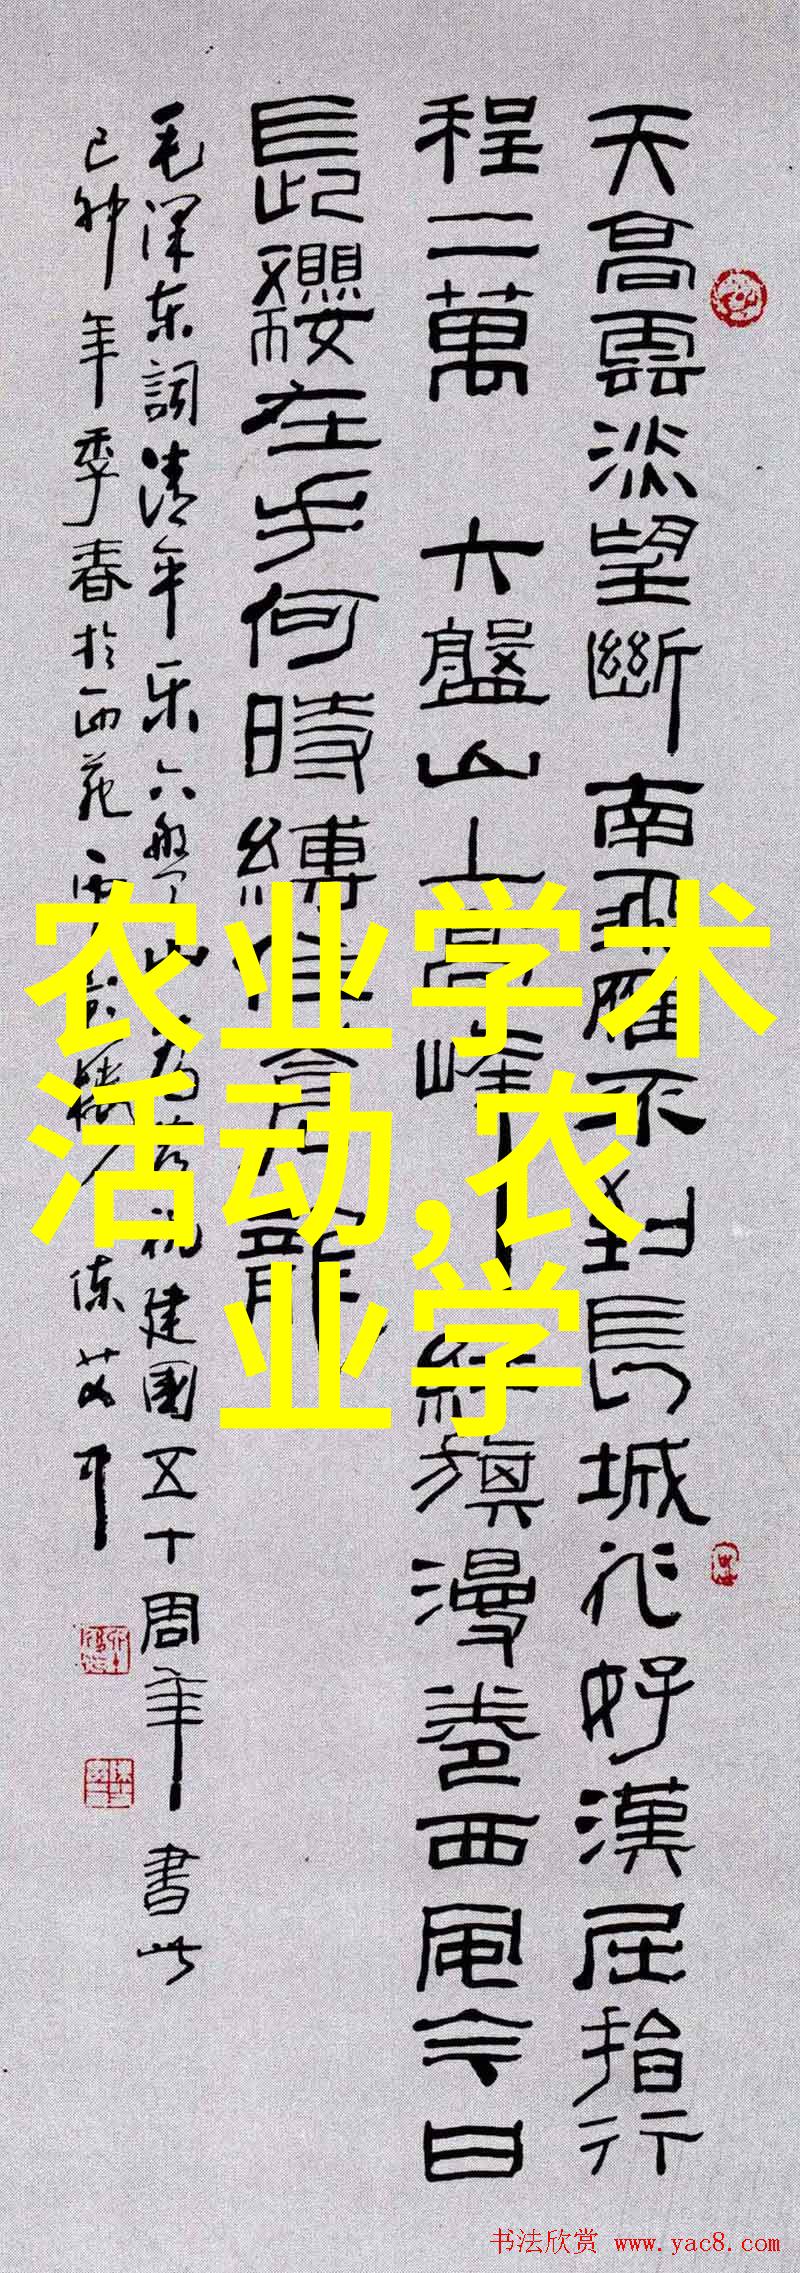 天高雲淡望斷南飛雁不到長城非好漢屈指行
程二萬 六盤山上高峰紅旗漫卷西風今日
長纓在手何時縛住蒼龍
毛澤东詞清平乐六盤山 祝建國五十周年書此
己卯年季春於西苑
农业学术
活动,农
业学
书法欣赏 www.yac8.com